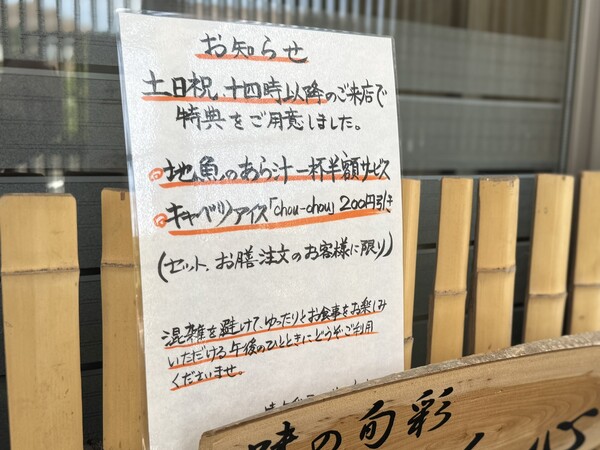 お知らせ
土日祝 十四時以降のご来店で
特典をご用意しました。
地魚のあら汁 一杯半額サービス
キャベツアイス「chou-chou」200円引き
(セット、お膳注文のお客様に限り)
混雑を避けて、ゆったりとお食事をお楽しみ
いただける午後のひとときにどうぞご利用
くださいませ。
味の旬彩